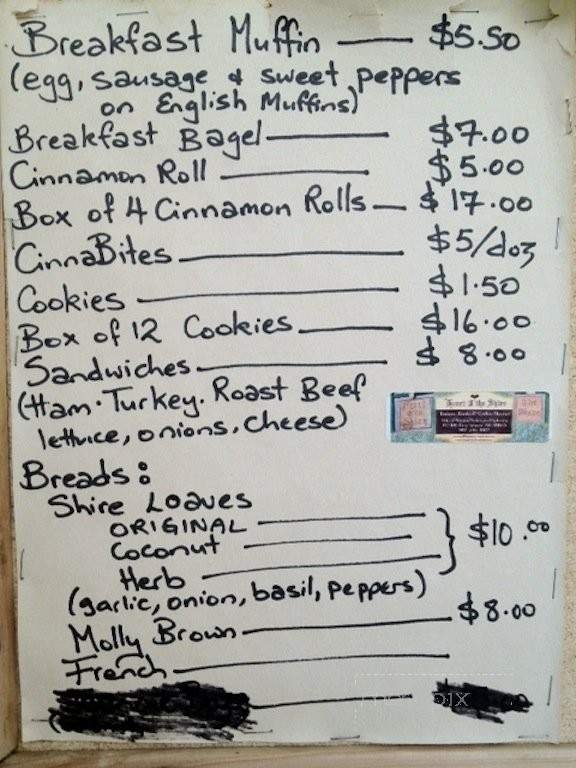 Breakfast Muffin — $5.50
(egg, sausage & sweet peppers
on English Muffins)
Breakfast Bagel — $7.00
Cinnamon Roll — $5.00
Box of 4 Cinnamon Rolls — $17.00
CinnaBites — $5/doz
Cookies — $1.50
Box of 12 Cookies — $16.00
Sandwiches — $8.00
(Ham. Turkey. Roast Beef
lettuce, onions, cheese)
Breads:
Shire Loaves
ORIGINAL —
Coconut — } $10.00
Herb —
(garlic, onion, basil, peppers)
Molly Brown — $8.00
French —